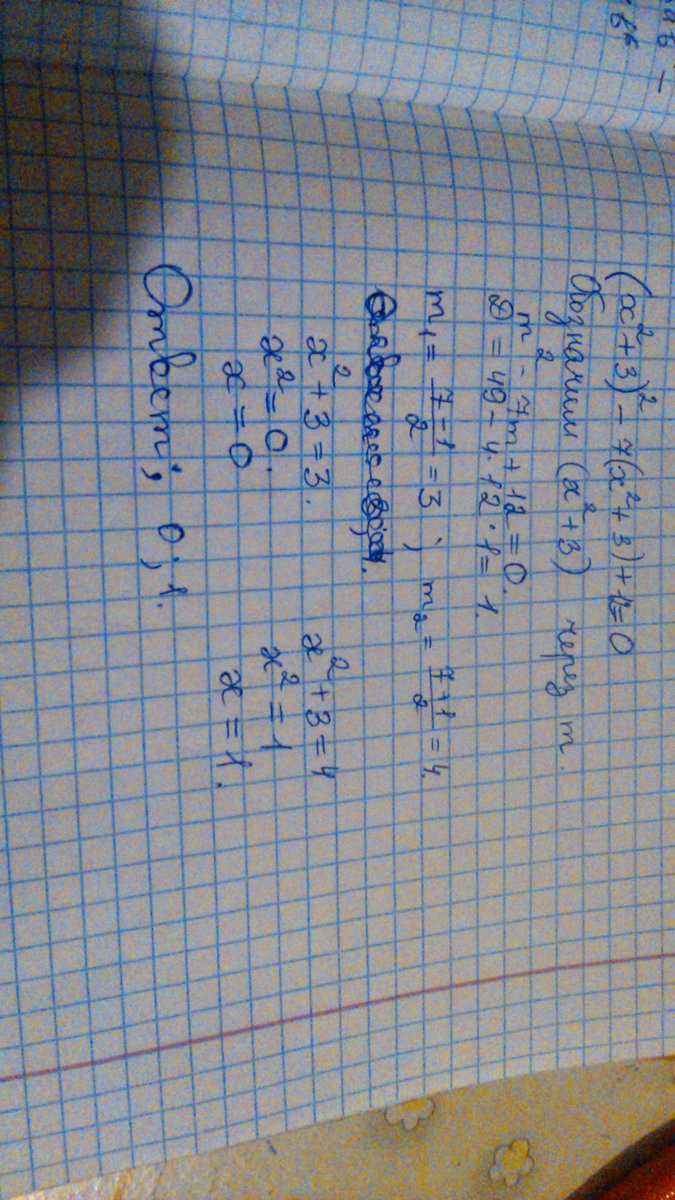 (x²+3)² - 7(x²+3)+12=0
Обозначим (x²+3) через m.
m² - 7m + 12 = 0.
D = 49 - 4·12·1 = 1.
m₁ = (7-1)/2 = 3; m₂ = (7+1)/2 = 4.
x²+3=3. x²+3=4
x²=0. x²=1
x=0 x=1.
Ответ: 0; 1.